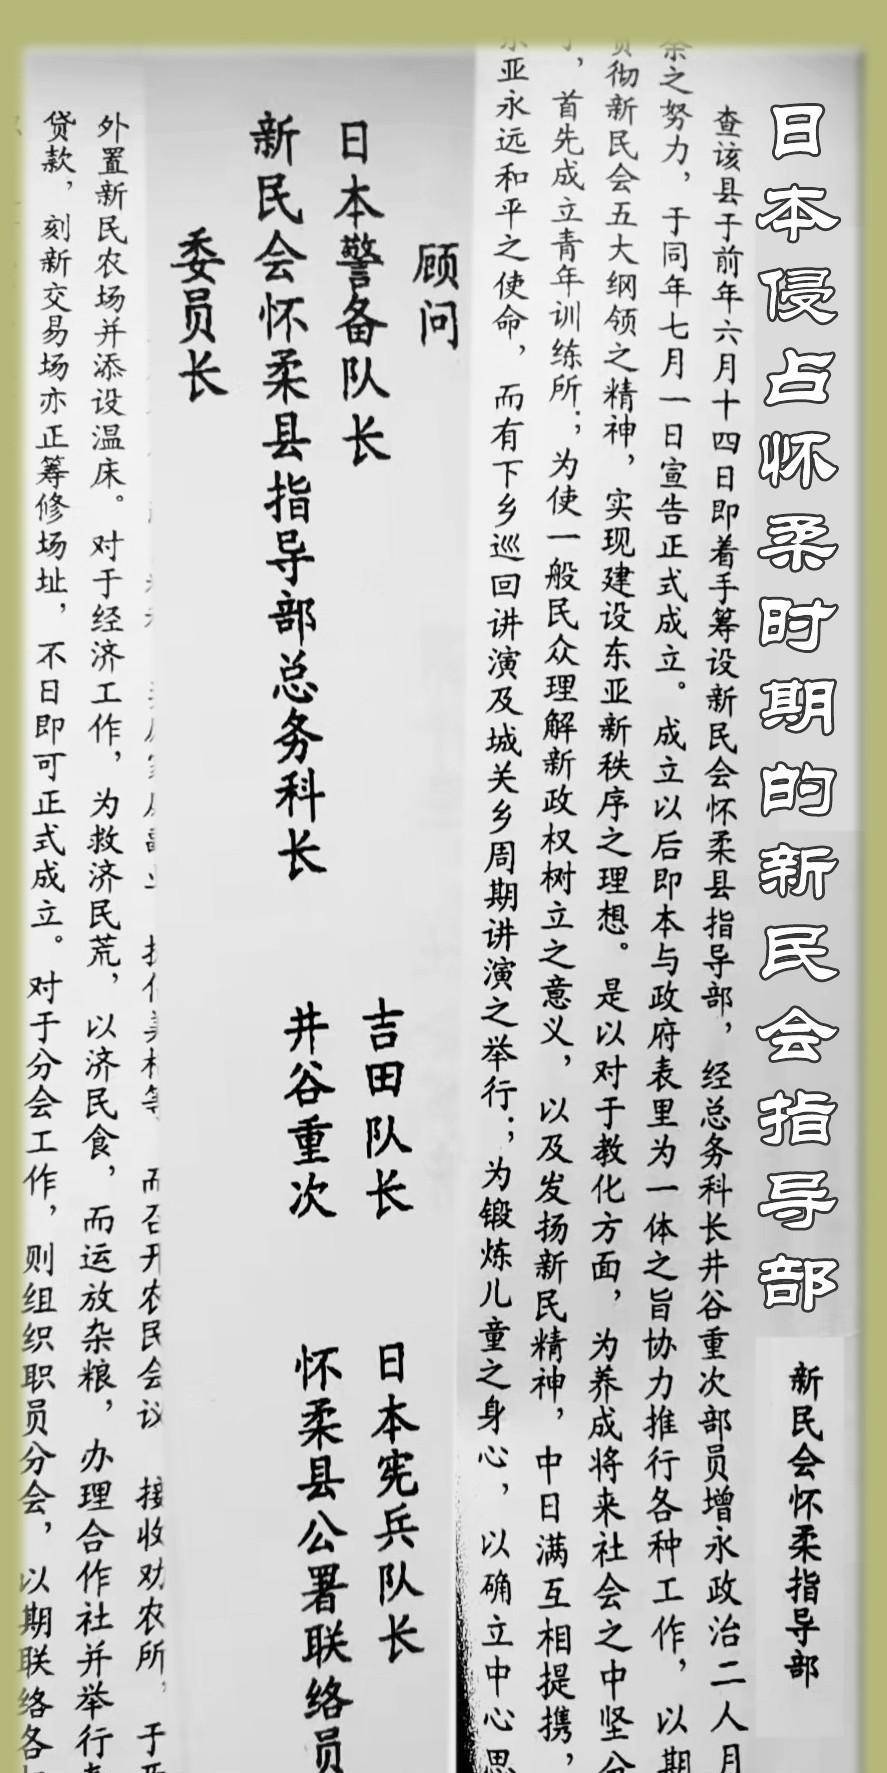 日本侵占怀柔时期的新民会指导部
新民会怀柔指导部
查该县于前年六月十四日即着手筹设新民会怀柔县指导部，经总务科长井谷重次部员增永政治二人月
余之努力，于同年七月一日宣告正式成立。成立以后即本与政府表里为一体之旨协力推行各种工作，以期
贯彻新民会五大纲领之精神，实现建设东亚新秩序之理想。是以对于教化方面，为养成将来社会之中坚分
，首先成立青年训练所；为使一般民众理解新政权树立之意义，以及发扬新民精神，中日满互相提携，
亚永远和平之使命，而有下乡巡回讲演及城关乡周期讲演之举行；为锻炼儿童之身心，以确立中心思
顾问
日本警备队长 吉田队长 日本宪兵队长
新民会怀柔县指导部总务科长 井谷重次 怀柔县公署联络员
委员长
而召开农民会议 接收劝农所，于
外置新民农场并添设温床。对于经济工作，为救济民荒，以济民食，而运放杂粮，办理合作社并举行
贷款，刻新交易场亦正筹修场址，不日即可正式成立。对于分会工作，则组织职员分会，以期联络各